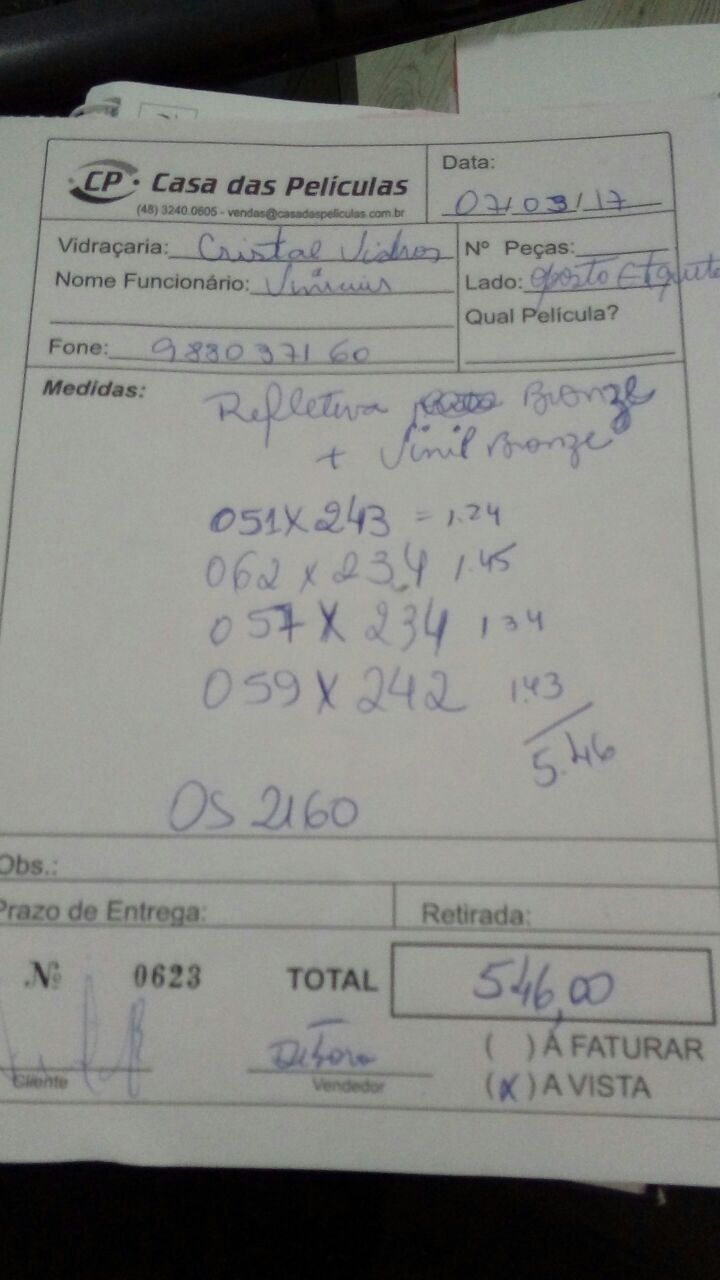 CP Casa das Películas
(48) 3240.0605 - vendas@casadaspeliculas.com.br
Data:
07/03/17
Vidraçaria: Cristal Vidros
Nome Funcionário: Vinicius
Fone: 988037160
Nº Peças:
Lado: oposto Etiqueta
Qual Película?
Medidas:
Refletiva Bronze
+ Vinil Bronze
051 X 243 = 1.24
062 x 234 1.45
057 X 234 1 34
059 X 242 1.43
5.46
OS 2160
Obs.:
Prazo de Entrega:
Retirada:
Nº 0623 TOTAL 546,00
Cliente
Débora
Vendedor
( ) Á FATURAR
(X) A VISTA